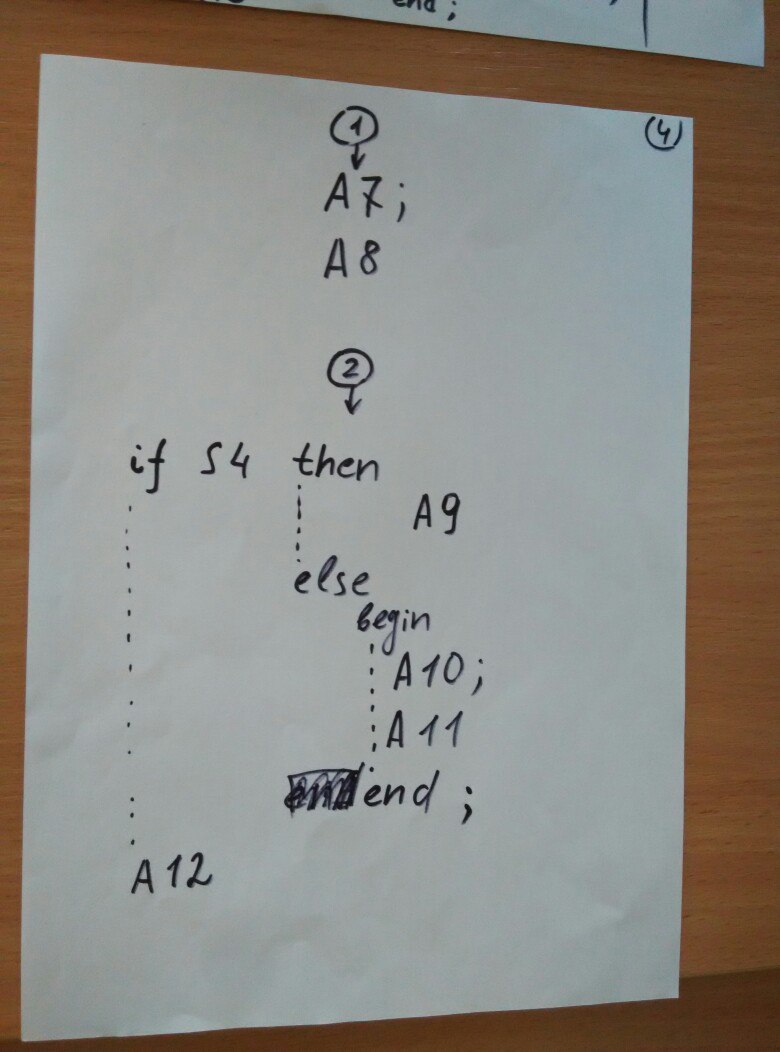 end;
(4)
1
A7;
A8
2
if S4 then
A9
else
begin
A10;
A11
end;
A12